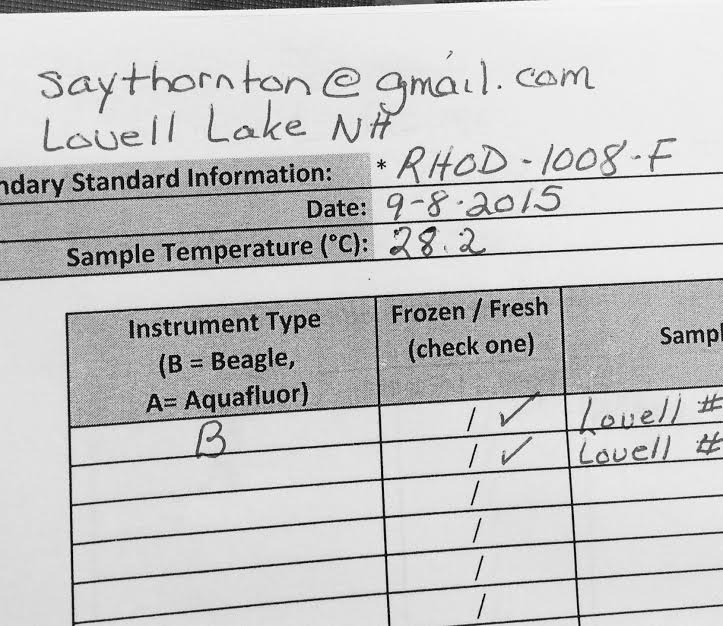 saythornton@gmail.com
Lovell Lake NH
ndary Standard Information: * RHOD-1008-F
Date: 9-8-2015
Sample Temperature (°C): 28.2
Instrument Type
(B = Beagle,
A= Aquafluor)
Frozen / Fresh
(check one)
Sampl
B / ✓ Lovell #
/ ✓ Lovell #
/
/
/
/